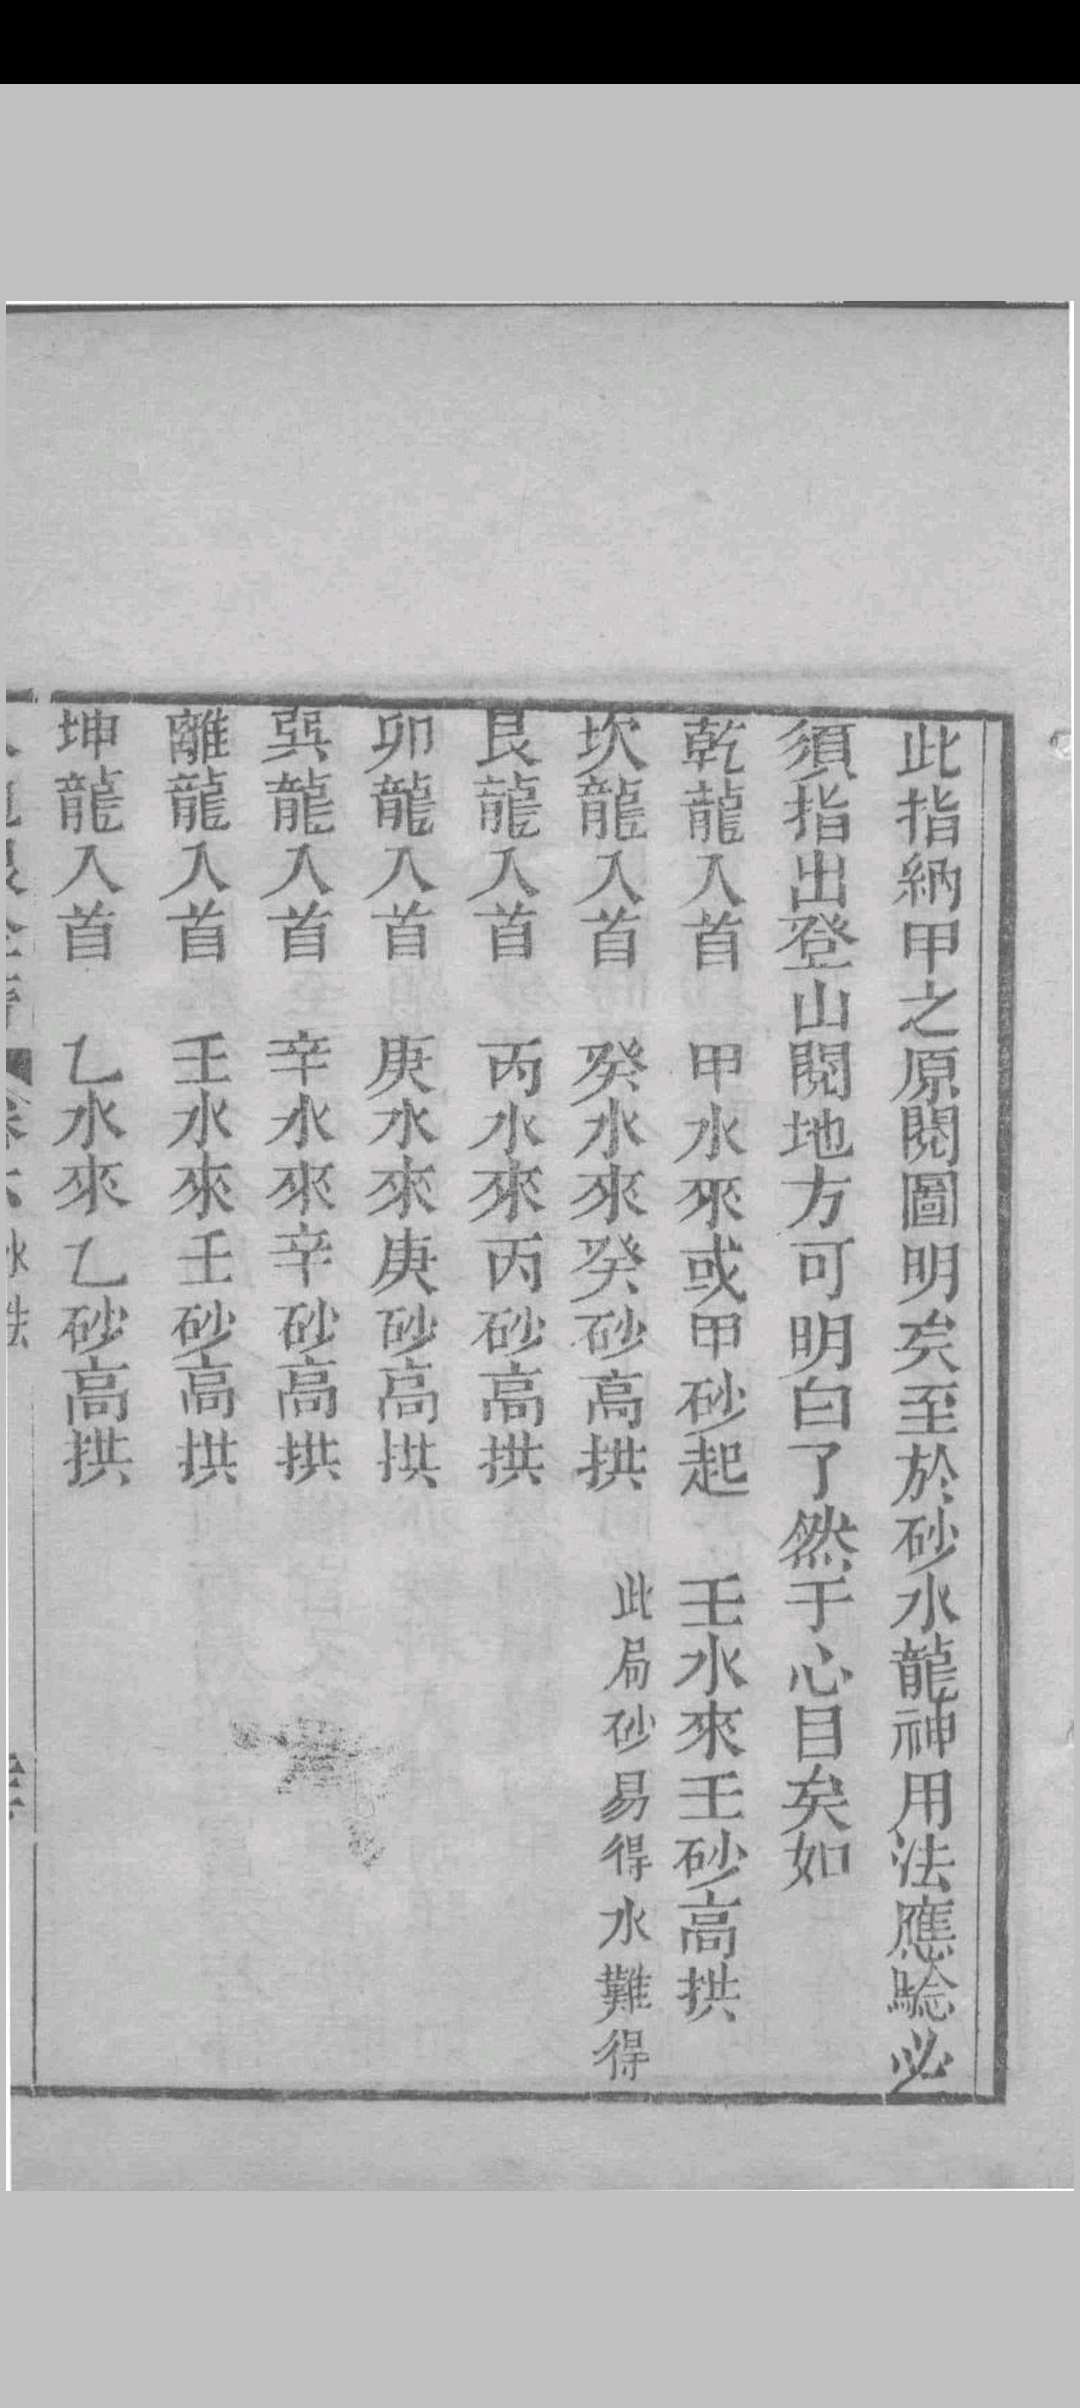 此指納甲之原閱圖明矣至於砂水龍神用法應驗必
須指出登山閱地方可明白了然于心目矣如
乾龍入首　甲水來或甲砂起　壬水來壬砂高拱
坎龍入首　癸水來癸砂高拱　此局砂易得水難得
艮龍入首　丙水來丙砂高拱
卯龍入首　庚水來庚砂高拱
巽龍入首　辛水來辛砂高拱
離龍入首　壬水來壬砂高拱
坤龍入首　乙水來乙砂高拱